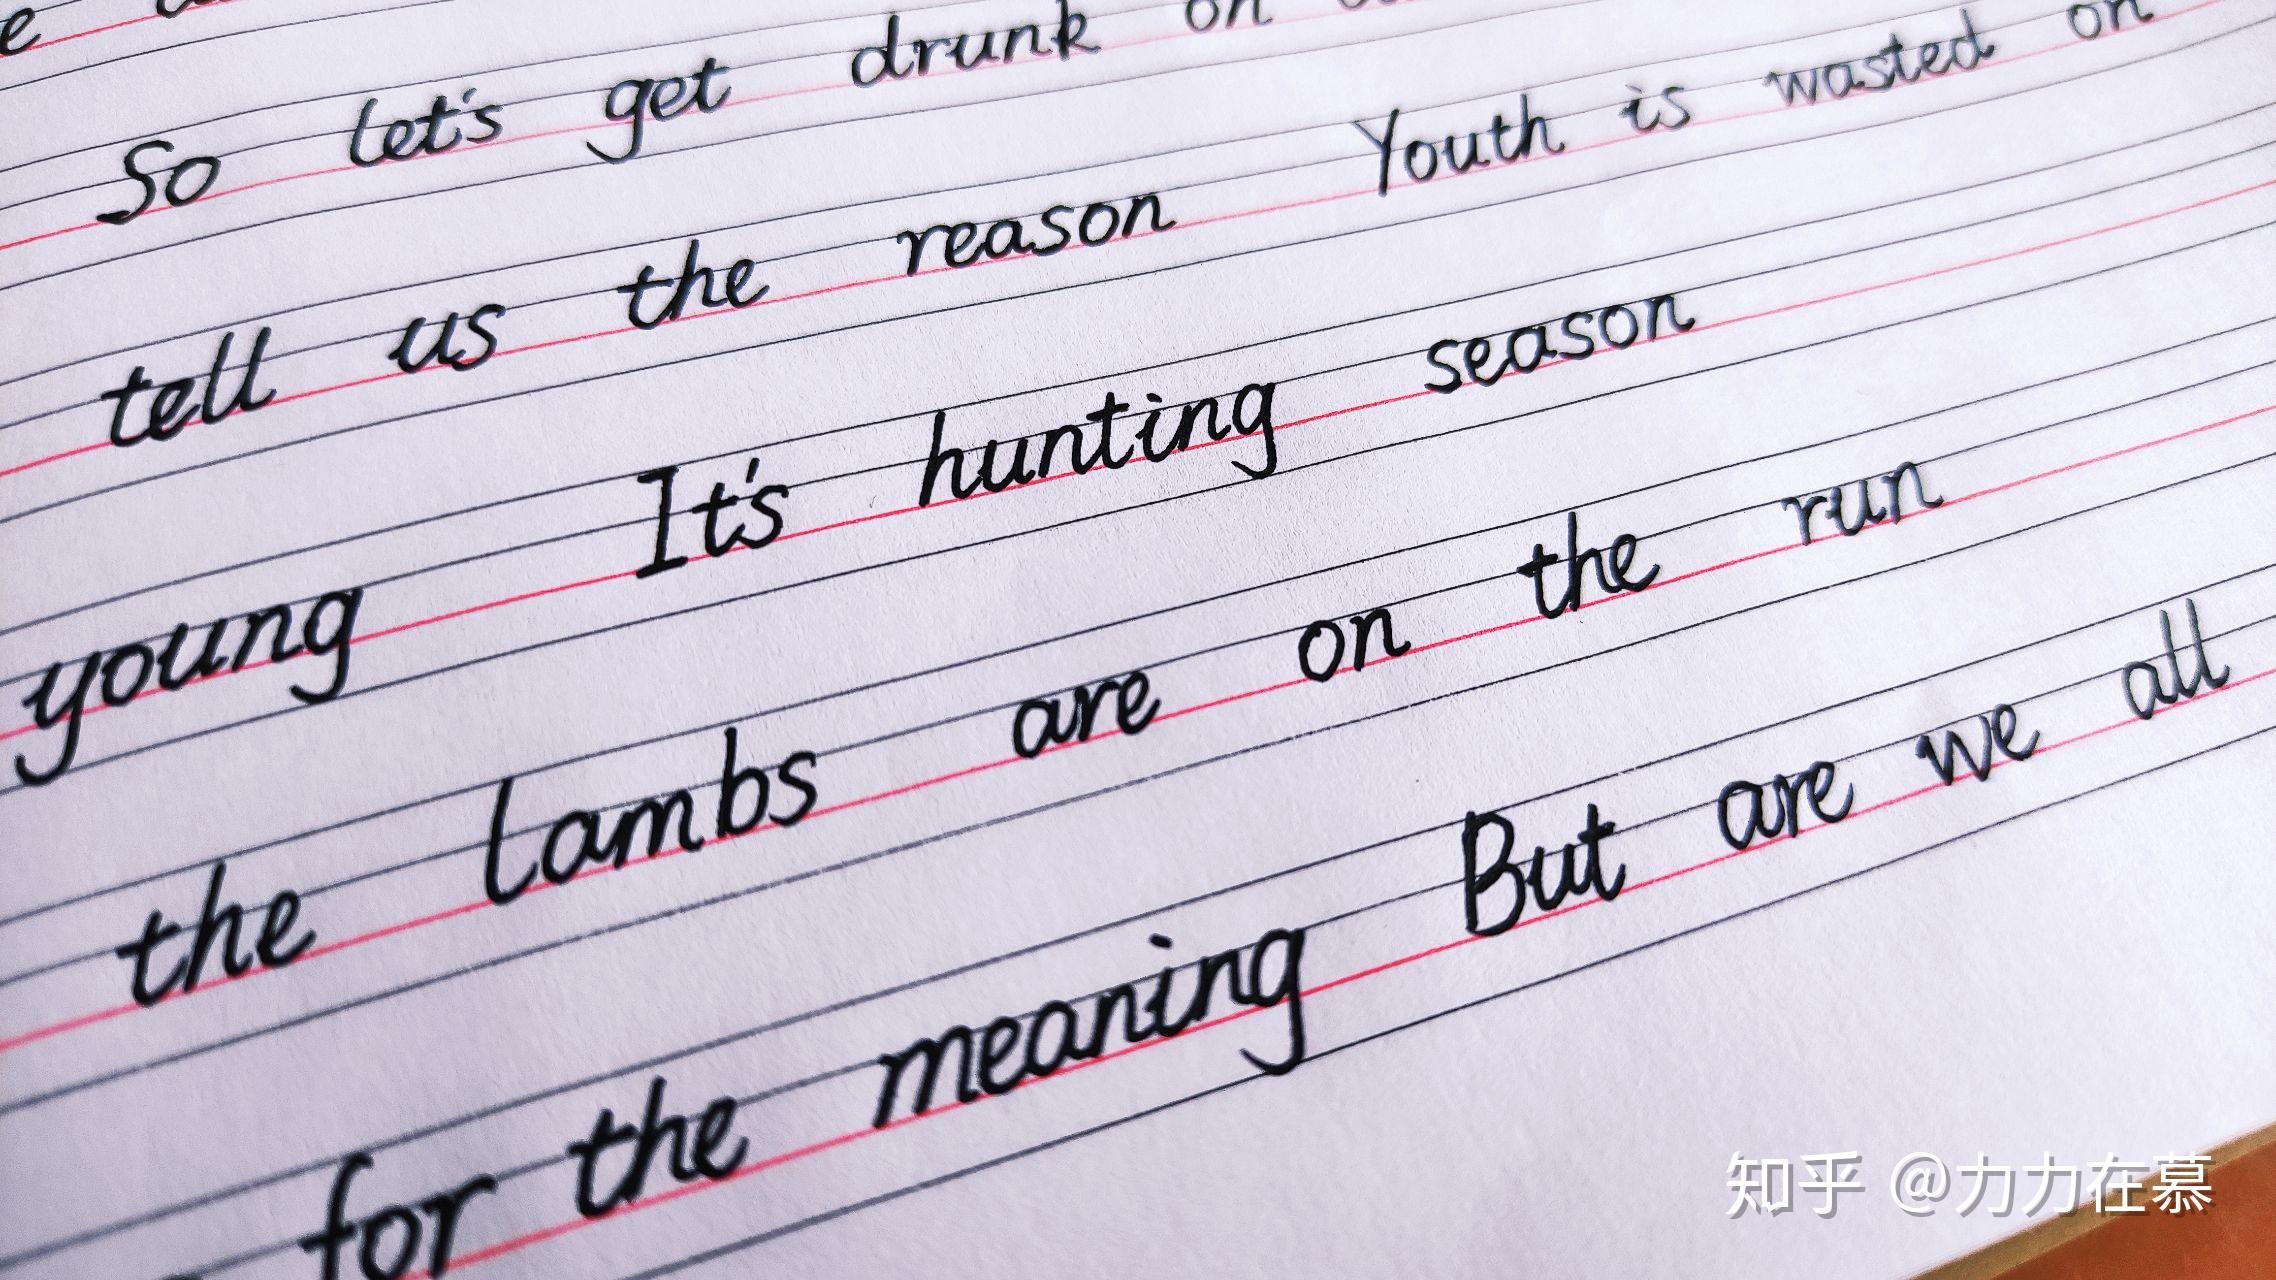 So let's get drunk on
tell us the reason Youth is wasted on
young It's hunting season
the lambs are on the run
for the meaning But are we all
知乎 @力力在慕